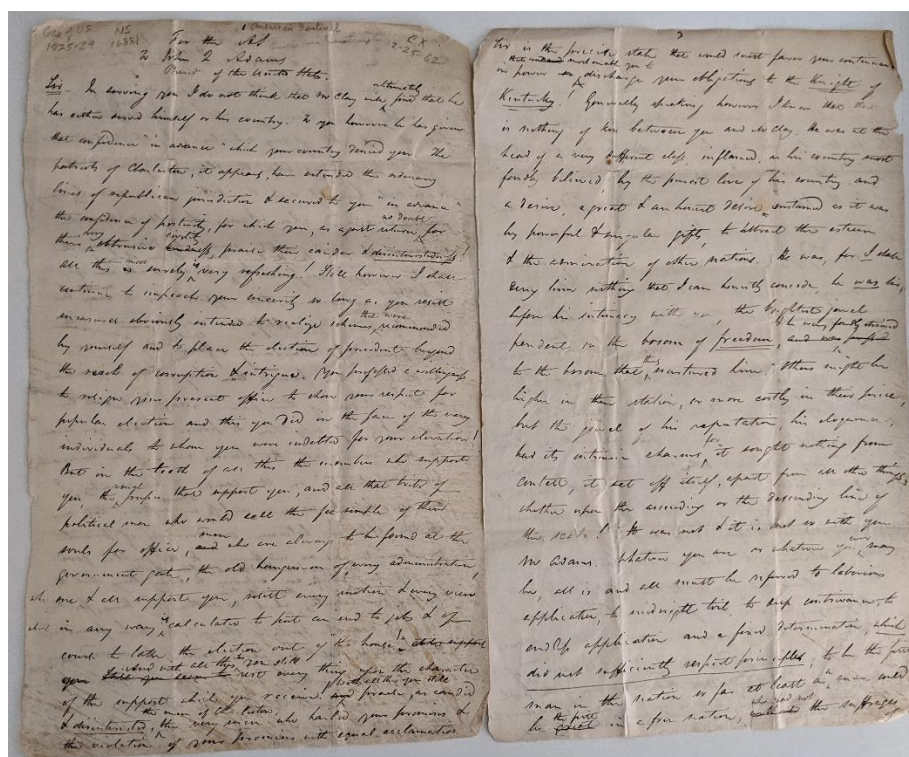 For the AS
To John Q Adams
Presd of the United States.
Sir. In serving you I do not think that Mr Clay will ultimately find that he
has either served himself or his country. To you however he has given
that confidence "in advance" which your country denied you. The
patriots of Charleston, it appears, have extended the ordinary
lines of republican jurisdiction & secured to you "in advance"
the confidence of posterity, for which you, as a just return, no doubt for
their very obtrusive praise their candor & disinterestedness!
all this is most surely "very refreshing"! Still however I shall
continue to impeach your sincerity so long as you resist
measures obviously intended to realize schemes, that were recommended
by yourself and to place the election of president beyond
the reach of corruption & intrigue. You professed a willingness
to resign your present office to show your respect for
popular election and this you did in the face of the very
individuals to whom you were indebted for your elevation!
But in the teeth of all this the members who support
you, the people that support you, and all that tribe of
political men who would sell the fee simple of their
souls for office, men who are always to be found at the
government gate, the old hangers on of every administration,
one & all support you, resist every motion & every view
in any way calculated to put an end to jobs & of
course to take the election out of "the house"!
And with all this you still rest every thing upon the character
of the support which you received, as candid
& disinterested, the very men who hailed your promises &
the violation of your promises with equal acclamation
3
Sir is the precise state that would most favor your continuance
in power & discharge your obligations to the Knight of
Kentucky! Generally speaking however I know that there
is nothing of kin between you and Mr Clay. He was at the
head of a very different class, inflamed, as his country most
fondly believed, by the purest love of his country and
a desire, a great & an honest desire, sustained as it was
by powerful & singular gifts, to attract the esteem
& the admiration of other nations. He was, for I shall
deny him nothing that I can honestly concede, he was Sir,
before his intimacy with you, the brightest jewel
pendent on the bosom of freedom, and he was fondly strained
to the bosom that thus nurtured him. Others might be
higher in their station, or more costly in their price,
but the jewel of his reputation, his eloquence,
had its intrinsic charms, for it sought nothing from
contrast, it set off itself, apart from all other things,
whether upon the ascending or the descending line of
the scale! It was not & it is not so with you
Mr Adams. Whatever you are or whatever you ever may
be, all is and all must be referred to laborious
application, to midnight toil, to deep contrivance, to
endless application and a fixed determination, which
did not sufficiently respect principles, to be the first
man in the nation so far at least as a man could
be the first in a free nation, who had not the suffrages